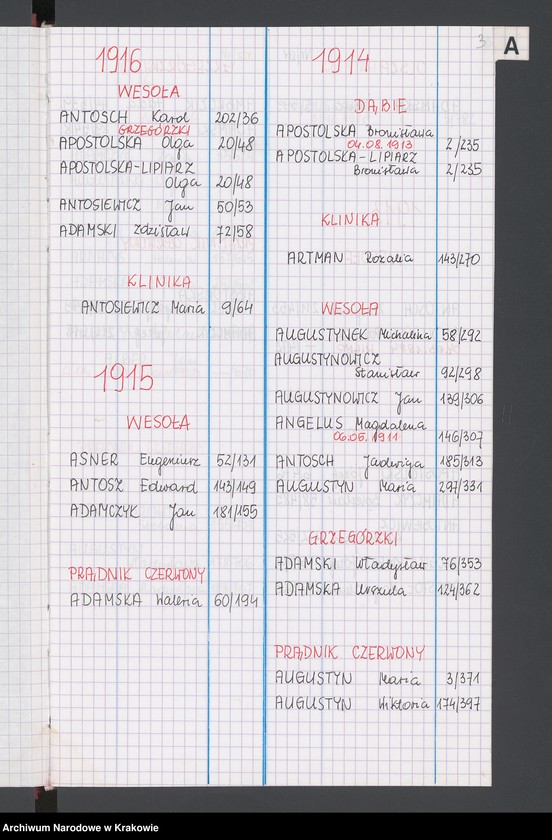 3
A
1916
WESOŁA
ANTOSCH Karol 202/36
GRZEGÓRZKI
APOSTOLSKA Olga 20/48
APOSTOLSKA-LIPIARZ
Olga 20/48
ANTOSIEWICZ Jan 50/53
ADAMSKI Zdzisław 72/58
KLINIKA
ANTOSIEWICZ Maria 9/64
1915
WESOŁA
ASNER Eugeniusz 52/131
ANTOSZ Edward 143/149
ADAMCZYK Jan 181/155
PRĄDNIK CZERWONY
ADAMSKA Waleria 60/194
1914
DĄBIE
APOSTOLSKA Bronisława
04.08.1913 2/235
APOSTOLSKA-LIPIARZ
Bronisława 2/235
KLINIKA
ARTMAN Rozalia 143/270
WESOŁA
AUGUSTYNEK Michalina 58/292
AUGUSTYNOWICZ
Stanisław 92/298
AUGUSTYNOWICZ Jan 139/306
ANGELUS Magdalena
06.05.1911 146/307
ANTOSCH Jadwiga 185/313
AUGUSTYN Maria 297/331
GRZEGÓRZKI
ADAMSKI Władysław 76/353
ADAMSKA Urszula 124/362
PRĄDNIK CZERWONY
AUGUSTYN Maria 3/371
AUGUSTYN Wiktoria 174/397
Archiwum Narodowe w Krakowie